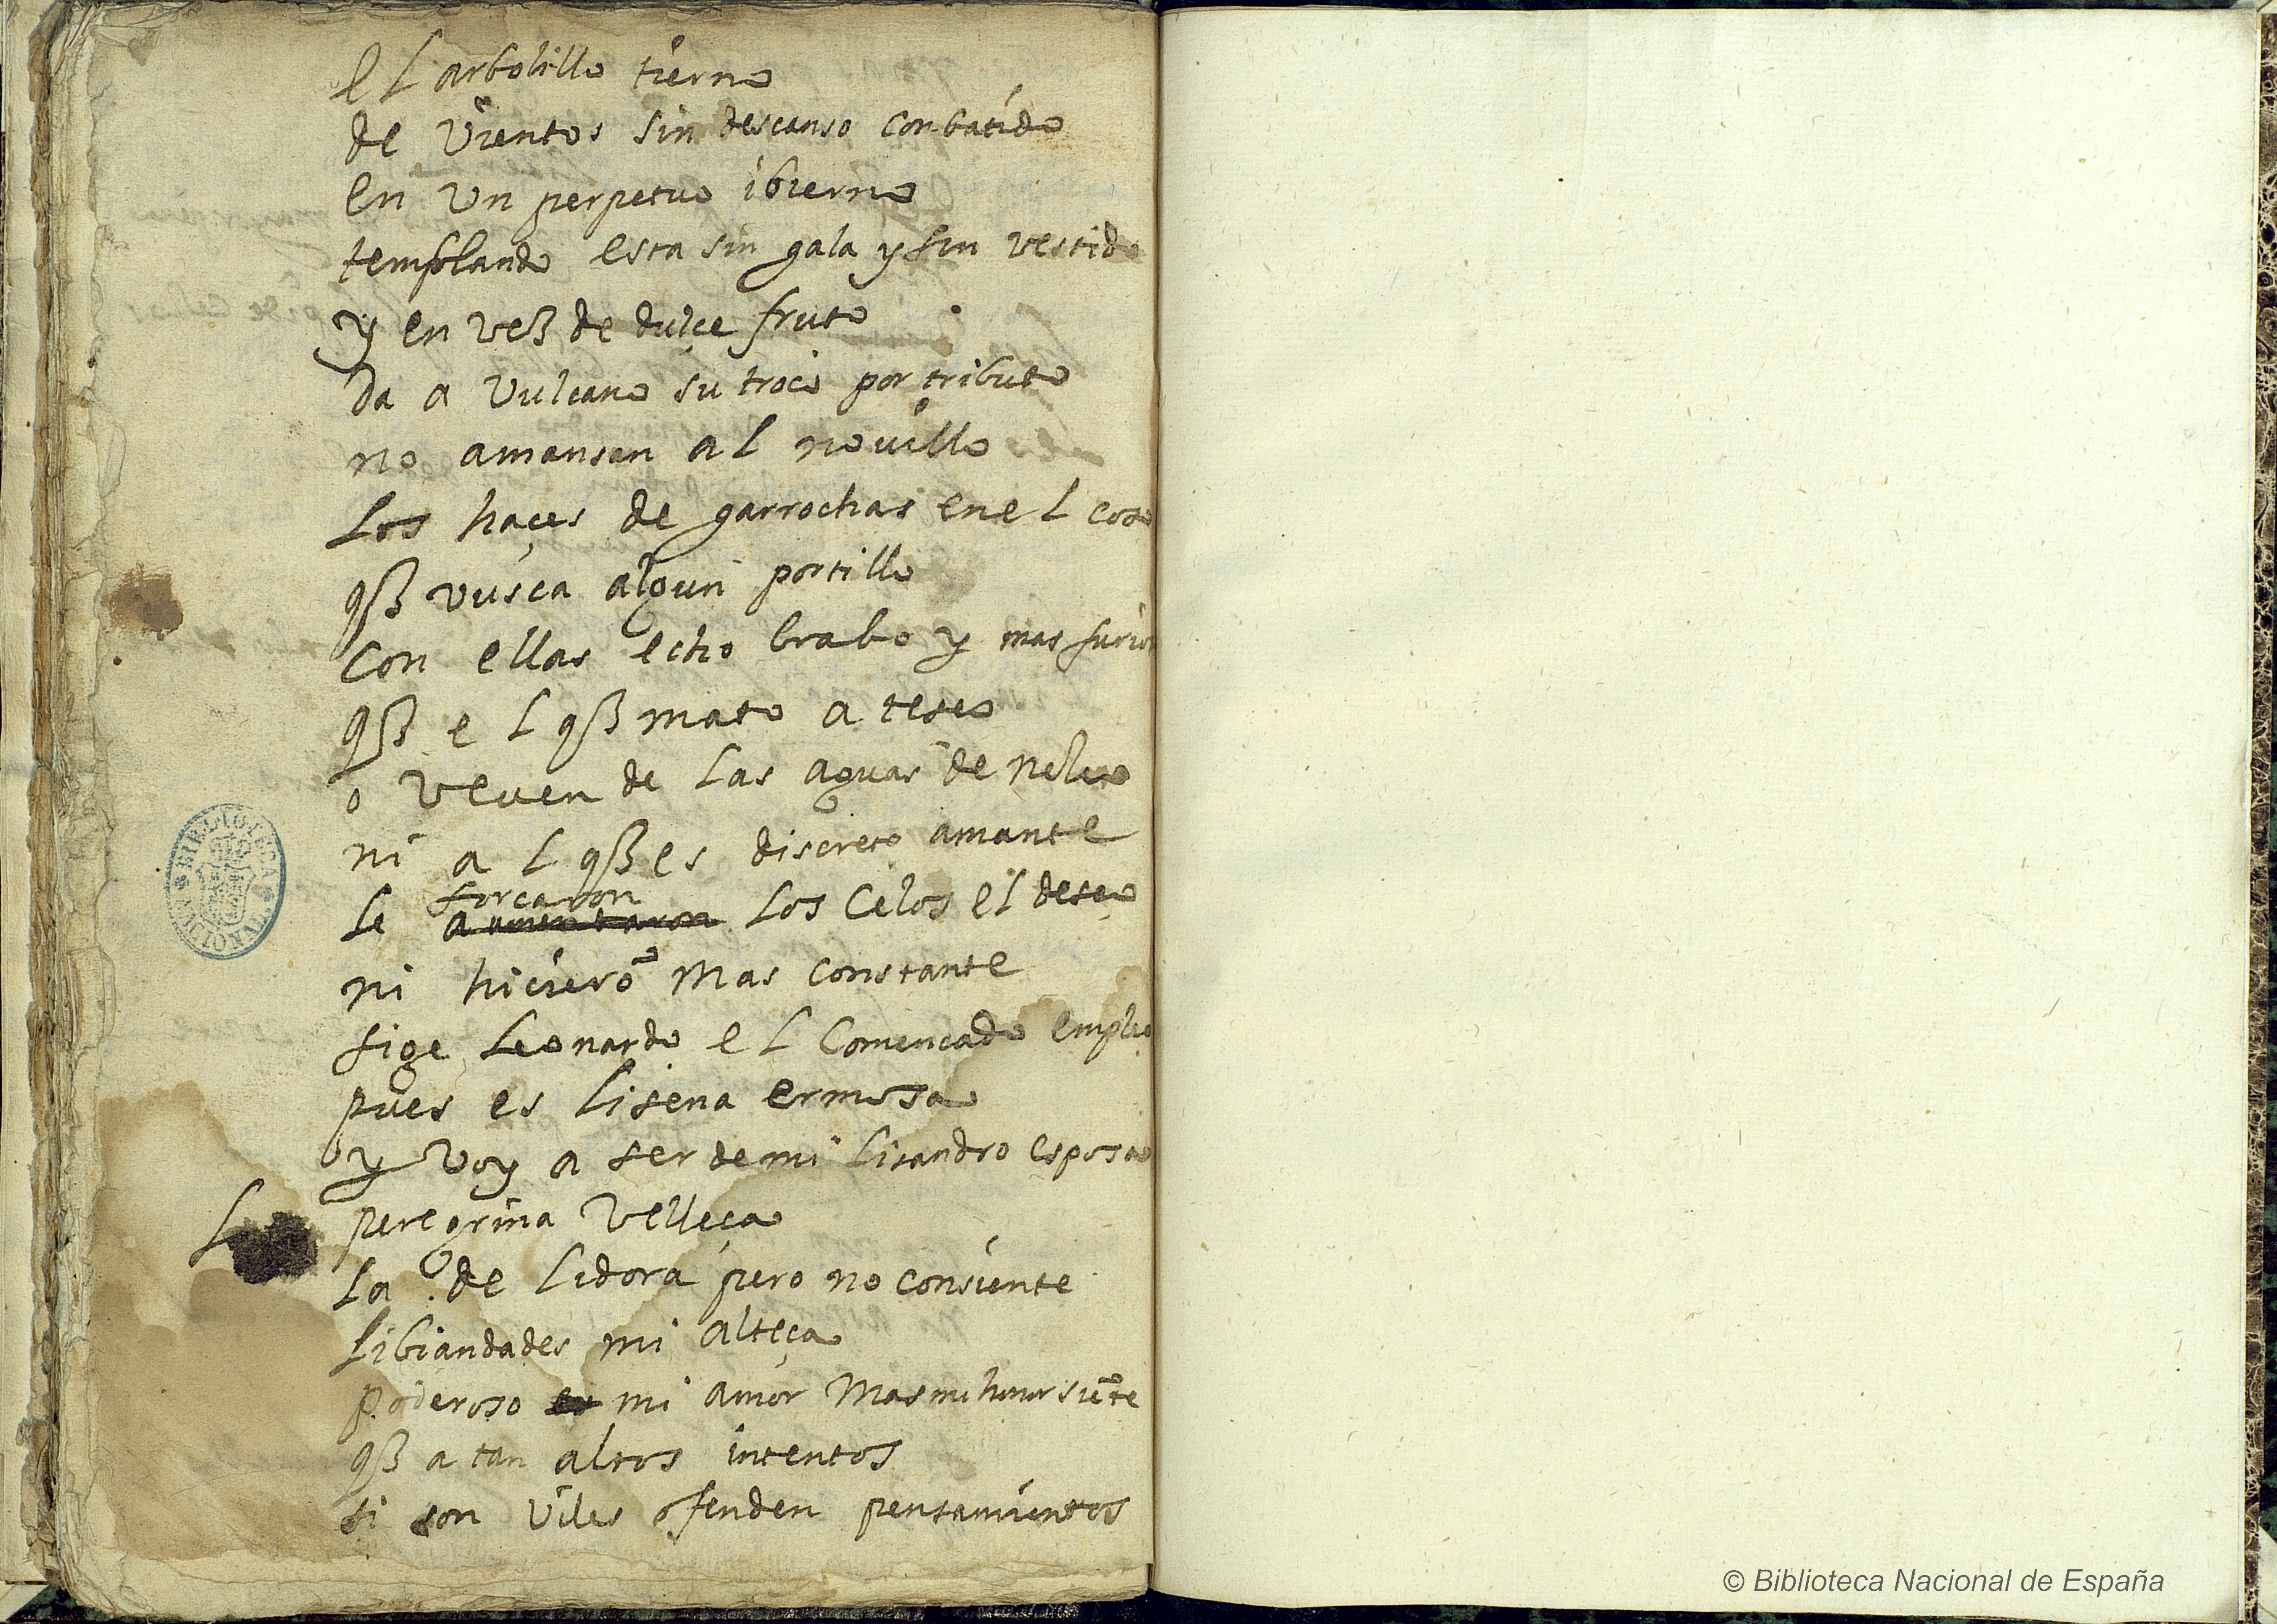 el arbolillo tierno
de vientos sin descanso conbatido
en un perpetuo ibierno
templando esta sin gala y sin vestido
y en vez de dulçe fruto
da a Vulcano su troco por tributo
no amansan al novillo
los haçes de garrochas en el coso
qe vusca algun portillo
con ellas echo brabo y mas furio
qe el qe mato a teseo
o veven de las aguas de
ni al qe es discreto amante
le forcaron los celos el deseo
aumentaron
ni hicierõ mas constante
sige Leonardo el comencado empleo
pues es lisena ermosa
y voy a ser de mi lisandro esposa
L peregrina velleça
la de lidora pero no consiente
libiandades mi alteça
poderoso es mi amor mas mi honor siẽte
qe a tan altos intentos
si son viles ofenden pensamientos
BIBLIOTECA NACIONAL
© Biblioteca Nacional de España